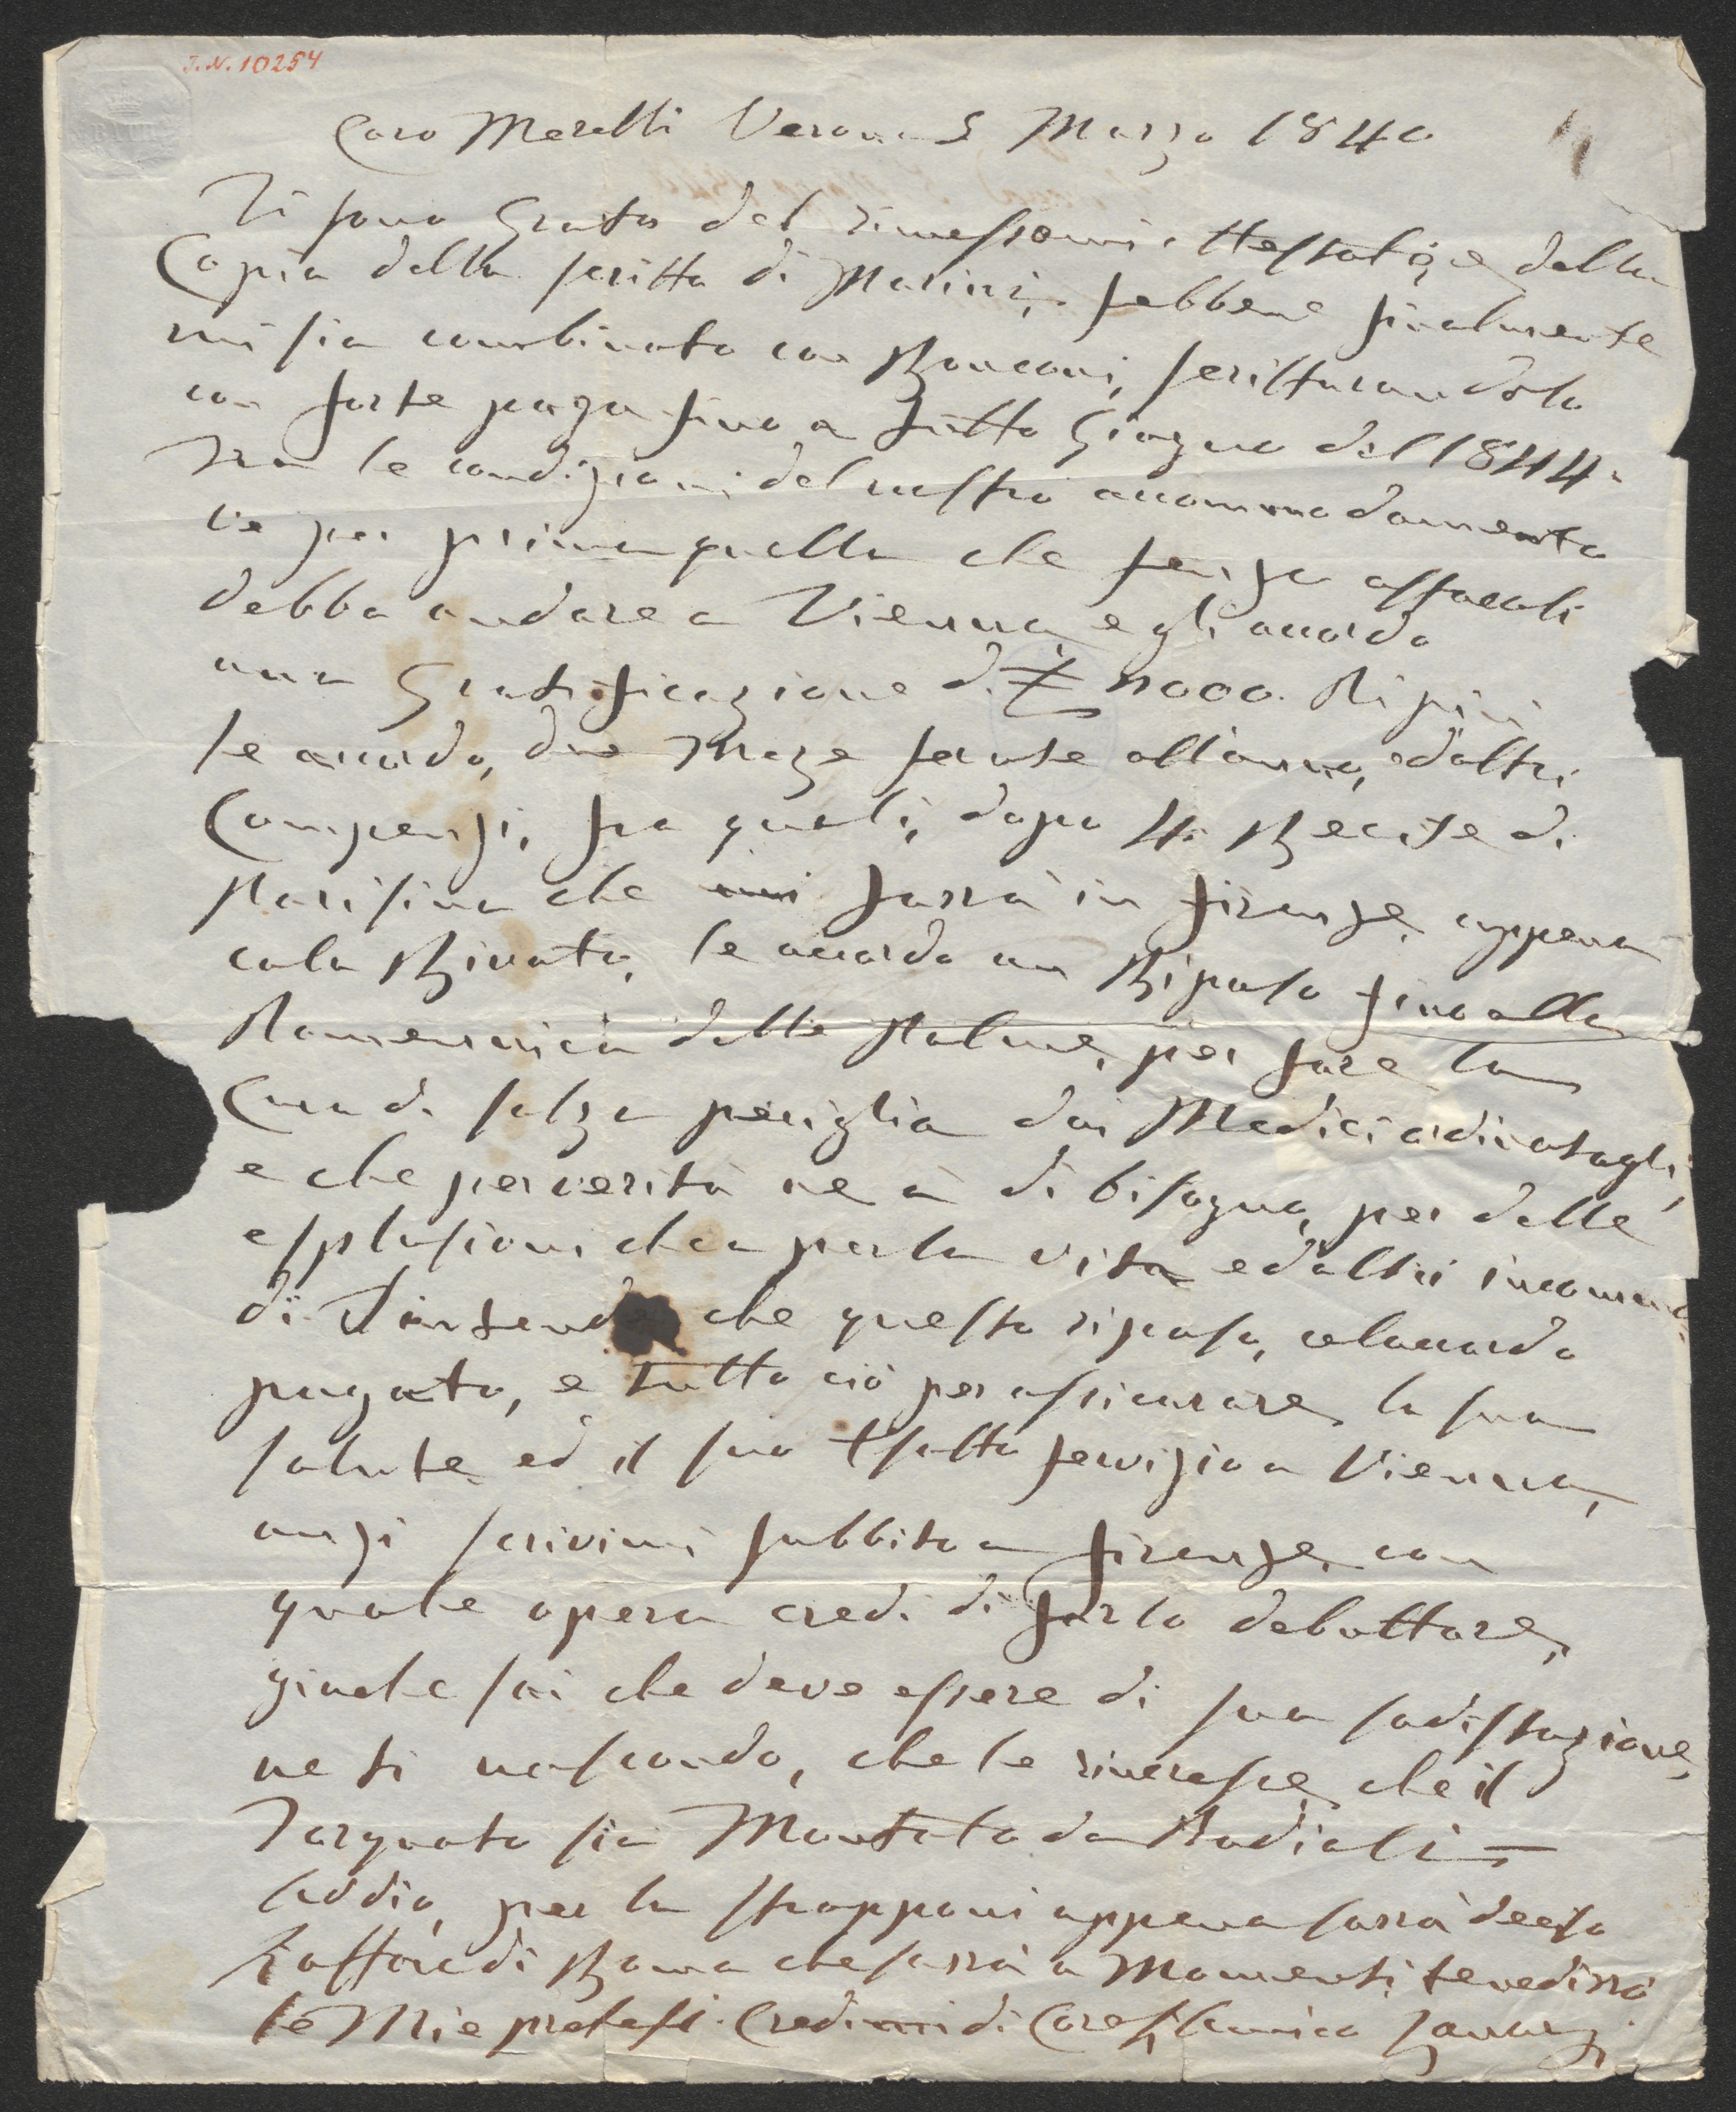 J.N. 10254
BATH
Caro Merelli Verona 5 Marzo 1840
Ti sono Grato del rimessomi Attestato, e della
Copia della scritta di Marini, sebbene finalmente
mi sia combinato con Ronconi, scritturandolo
con forte paga fino a tutto Giugno del 1844.
Tra le condizioni del nostro accommodamento
v'è per prima quella che senza ostacoli
debba andare a Vienna, e gli accordo
una Gratificazione di £ 1000. Di più
le accordo, due Meze serate all'anno, ed altri
Compenzi, fra quali, dopo 4. Recite di
Parisina che mi farrà in Firenze, appena
colà Rivato, le accordo un Riposo fino alla
Domennica delle Palme, per fare la
Cura di salza periglia dai Medici ordinatagli,
e che per verità ne à di bisogno, per delle
esplusioni che a per la vita ed altri incommo
di. S'intende che questo riposo, celaccordo
pagato, e tutto ciò per assicurare la sua
salute, ed il suo Esatto servizio a Vienna,
anzi scrivimi subbito a Firenze, con
quale opera credi di farlo debuttare,
giache sai che deve essere di sua sadisfazione,
ne ti nascondo, che le rincresce, che il
Torquato sia Montato da Badiali —
Addio, per la Strapponi appena sarrà deciso
l'affare di Roma che sarrà a Momenti te ne dirrò
le Mie pretese. Credimi di Core, l'amico Lanari